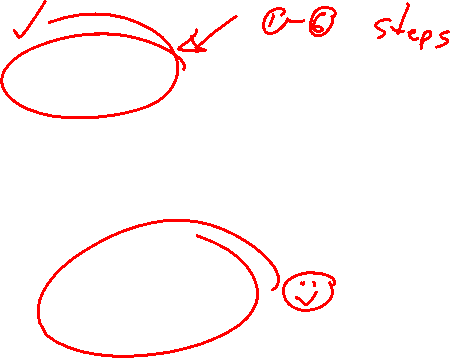 ①-⑥ steps